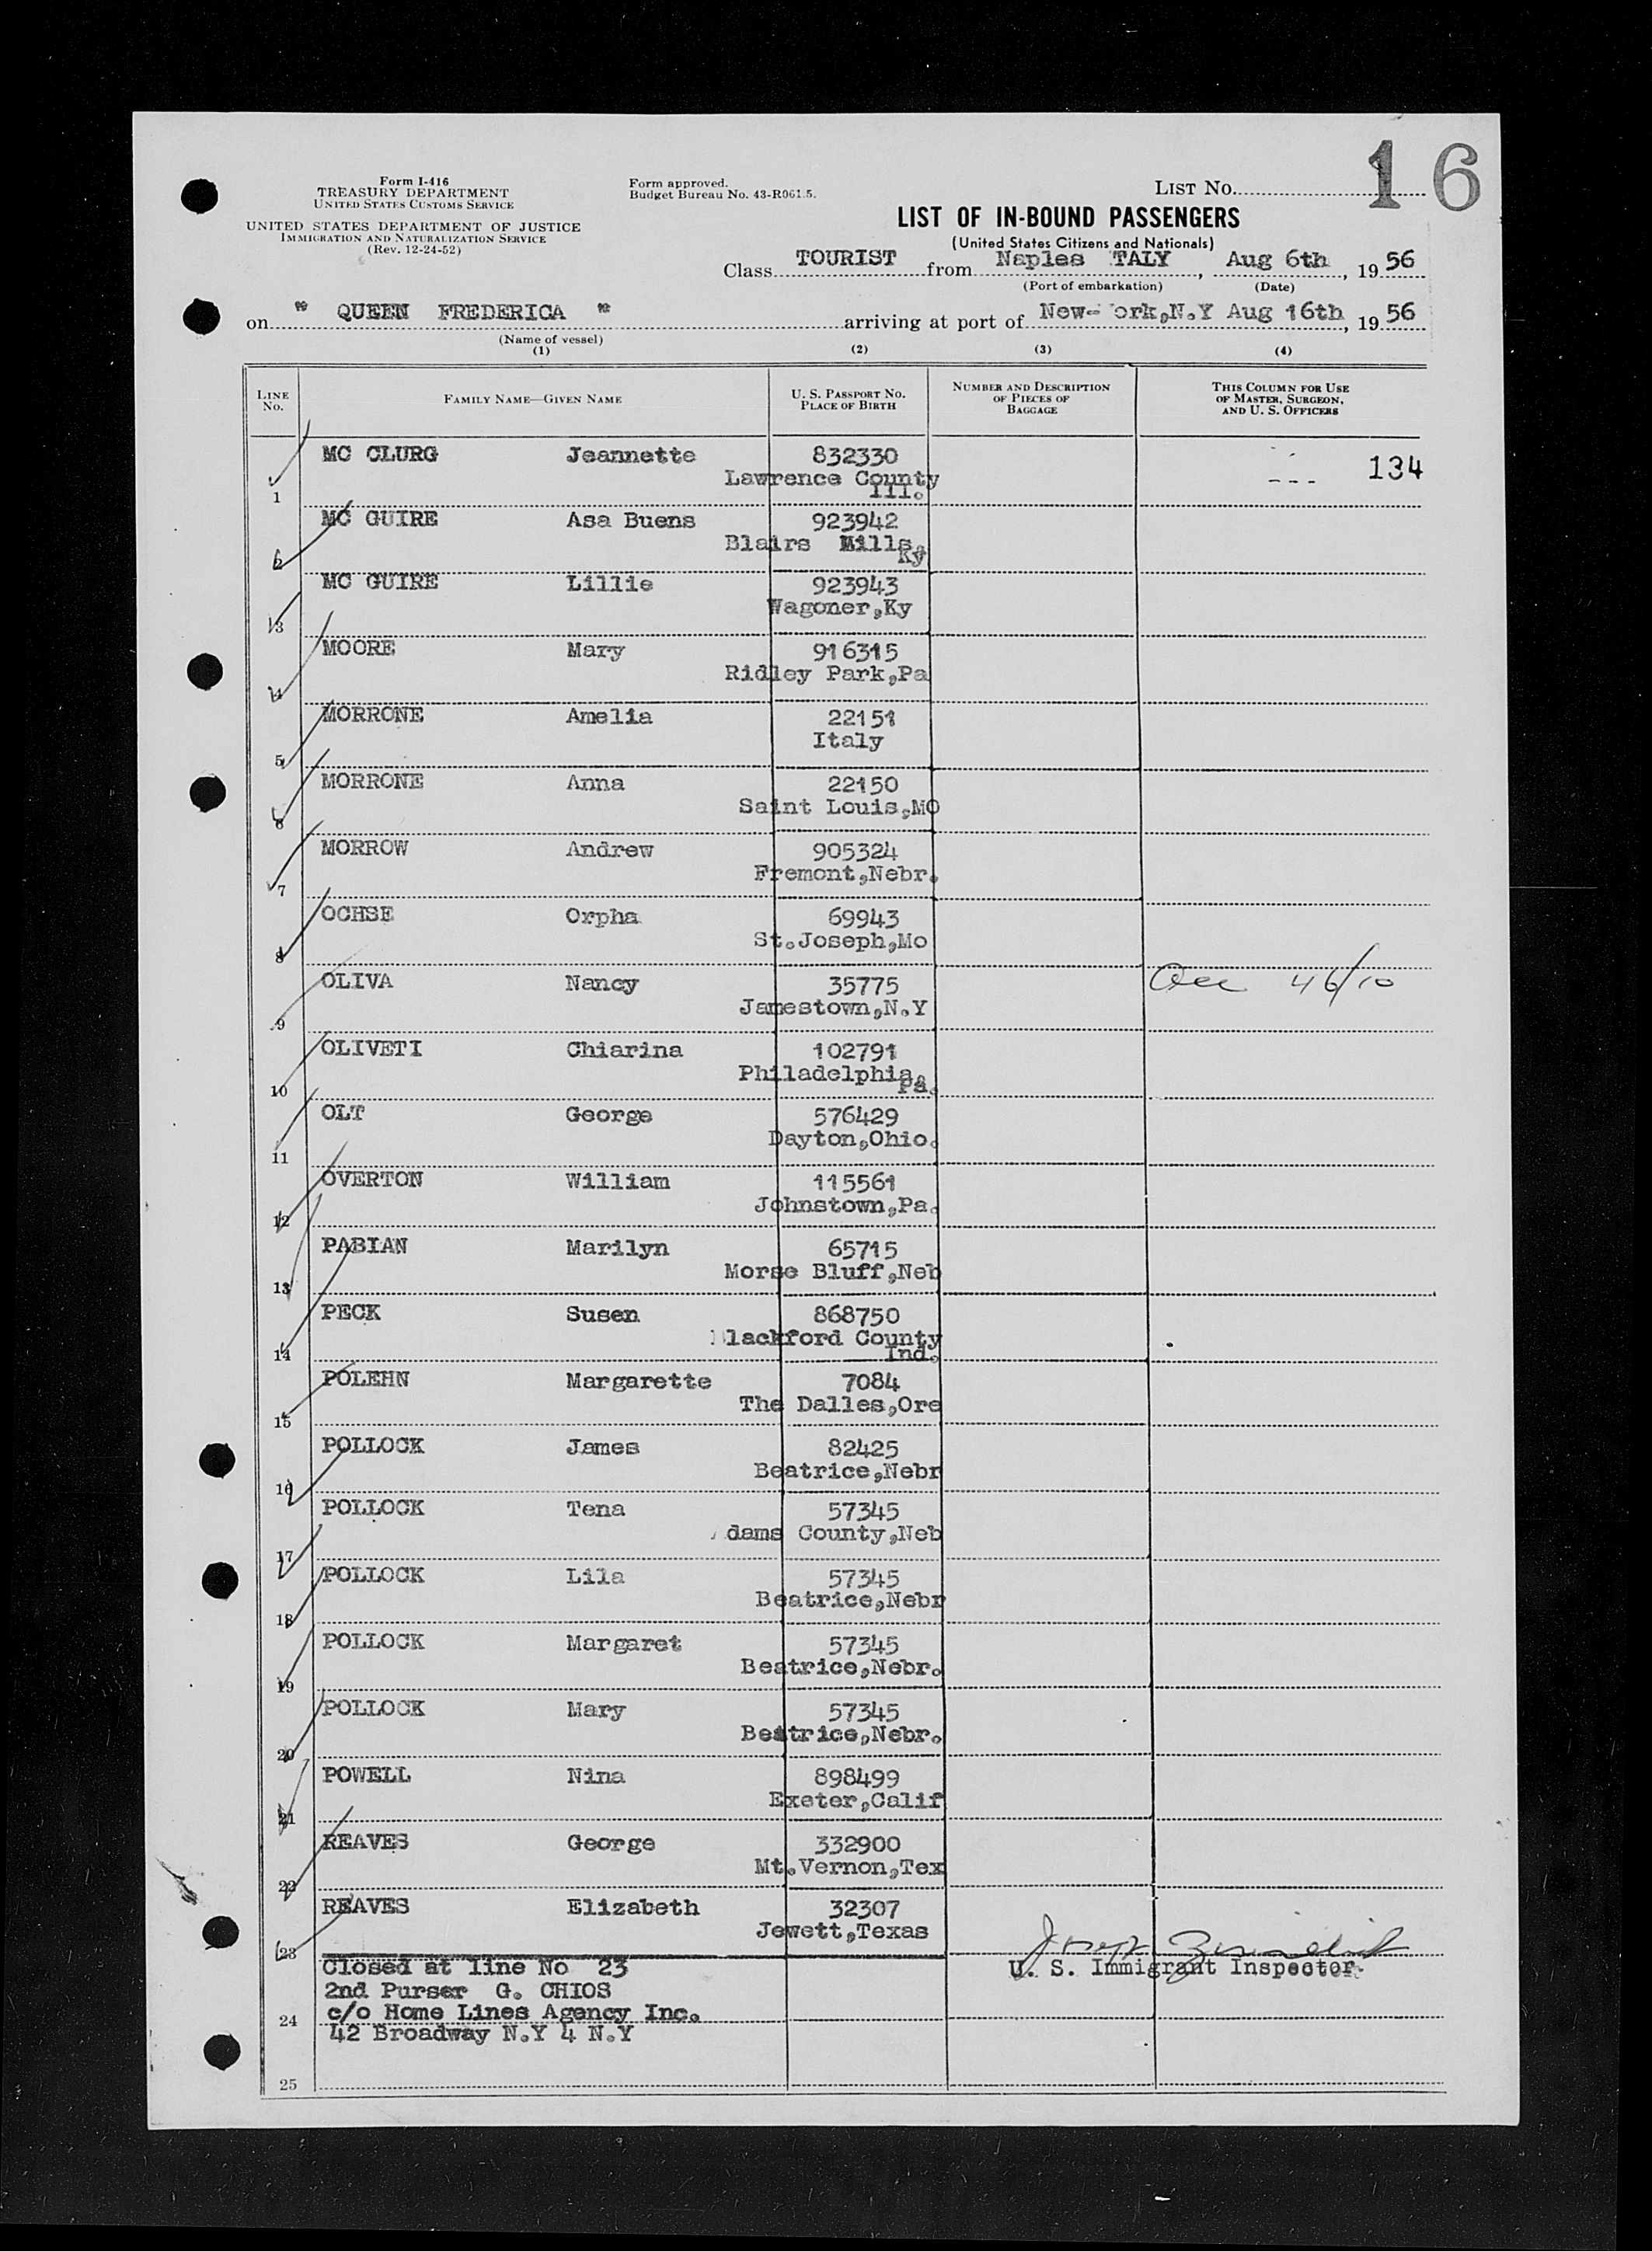 16
Form I-416
TREASURY DEPARTMENT
UNITED STATES CUSTOMS SERVICE
UNITED STATES DEPARTMENT OF JUSTICE
IMMIGRATION AND NATURALIZATION SERVICE
(Rev. 12-24-52)
Form approved.
Budget Bureau No. 43-R061.5.
LIST NO.
LIST OF IN-BOUND PASSENGERS
(United States Citizens and Nationals)
Class TOURIST from Naples TALY, Aug 6th, 19 56
(Port of embarkation) (Date)
on " QUEEN FREDERICA " arriving at port of New- ork,N.Y Aug 16th, 19 56
(Name of vessel)
(1) (2) (3) (4)
LINE No. FAMILY NAME—GIVEN NAME U. S. PASSPORT NO. PLACE OF BIRTH NUMBER AND DESCRIPTION OF PIECES OF BAGGAGE THIS COLUMN FOR USE OF MASTER, SURGEON, AND U. S. OFFICERS
MC CLURG Jeannette 832330 --- 134
1 Lawrence County Ill.
MC GUIRE Asa Buens 923942
2 Blairs Mills, Ky
MC GUIRE Lillie 923943
3 Wagoner,Ky
MOORE Mary 916315
4 Ridley Park,Pa
MORRONE Amelia 22151
5 Italy
MORRONE Anna 22150
6 Saint Louis,MO
MORROW Andrew 905324
7 Fremont,Nebr.
OCHSE Orpha 69943
8 St.Joseph,Mo
OLIVA Nancy 35775 46/10
9 Jamestown,N.Y
OLIVETI Chiarina 102791
10 Philadelphia, Pa.
OLT George 576429
11 Dayton,Ohio.
OVERTON William 115561
12 Johnstown,Pa.
PABIAN Marilyn 65715
13 Morse Bluff,Neb
PECK Susen 868750
14 lackford County Ind.
POLEHN Margarette 7084
15 The Dalles,Ore
POLLOCK James 82425
16 Beatrice,Nebr
POLLOCK Tena 57345
17 dams County,Neb
POLLOCK Lila 57345
18 Beatrice,Nebr
POLLOCK Margaret 57345
19 Beatrice,Nebr.
POLLOCK Mary 57345
20 Beatrice,Nebr.
POWELL Nina 898499
21 Exeter,Calif
REAVES George 332900
22 Mt.Vernon,Tex
REAVES Elizabeth 32307
23 Jewett,Texas
Closed at line No 23 U. S. Immigrant Inspector.
2nd Purser G. CHIOS
c/o Home Lines Agency Inc.
24
42 Broadway N.Y 4 N.Y
25